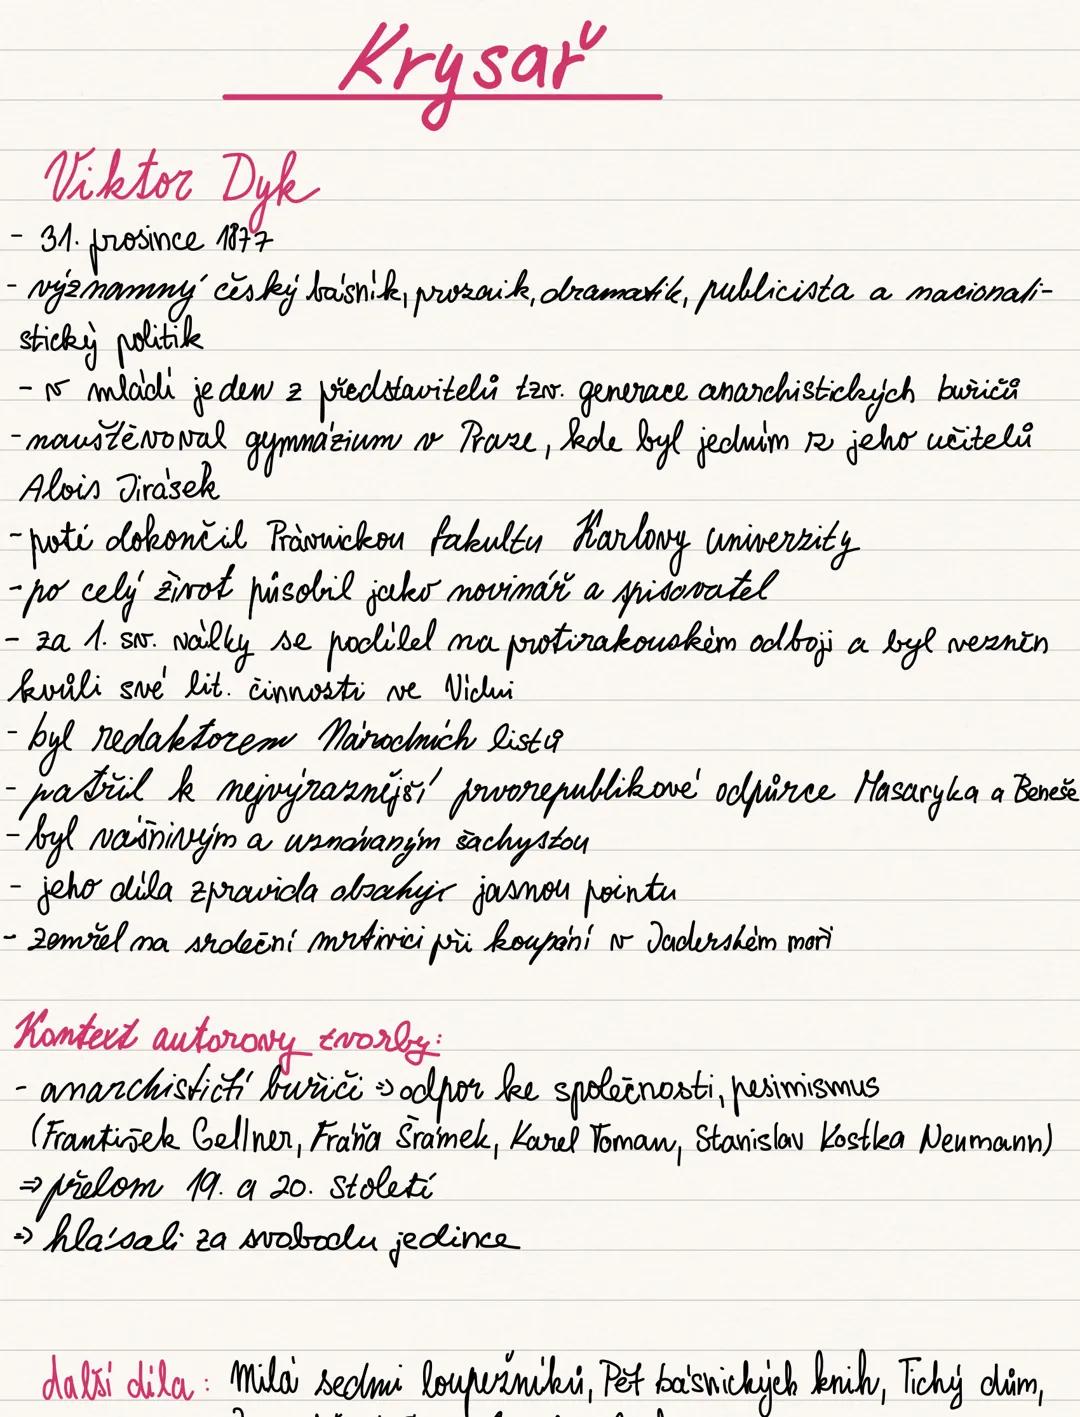 Krysař
Viktor Dyk
- 31. prosince 1877
- významný český básník, prozaik, dramatik, publicista a nacionali-
stický politik
- v mládí jeden z představitelů tzv. generace anarchistických buřičů
- navštěvoval gymnázium v Praze, kde byl jedním z jeho učitelů
Alois Jirásek
- poté dokončil Právnickou fakultu Karlovy univerzity
- po celý život působil jako novinář a spisovatel
- za 1. sv. války se podílel na protirakouském odboji a byl vězněn
kvůli své lit. činnosti ve Vídni
- byl redaktorem Národních listů
- patřil k nejvýraznější prvorepublikové odpůrce Masaryka a Beneše
- byl vášnivým a uznávaným šachystou
- jeho díla zpravida obsahuje jasnou pointu
- zemřel na srdeční mrtvici při koupání v Jaderském moři
Kontext autorovy tvorby:
- anarchističtí buřiči => odpor ke společnosti, pesimismus
(František Gellner, Fráňa Šrámek, Karel Toman, Stanislav Kostka Neumann)
=> přelom 19. a 20. století
=> hlásali za svobodu jedince
další díla: Milá sedmi loupežníků, Pět básnických knih, Tichý dům,